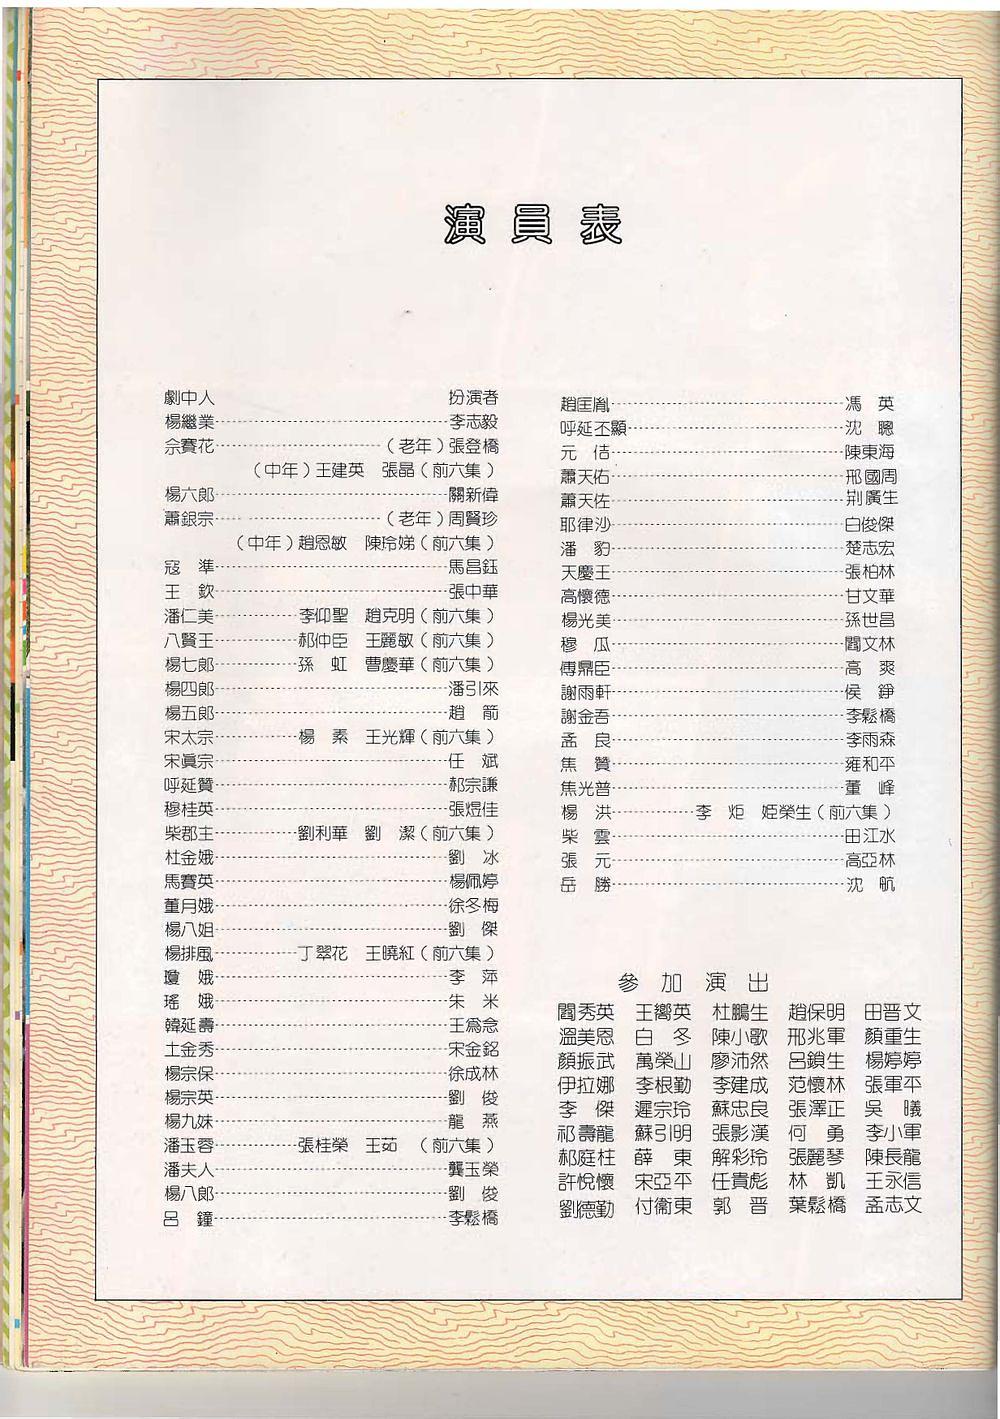 演員表
劇中人 扮演者
楊繼業 李志毅
佘賽花 (老年)張登橋
(中年)王建英 張晶(前六集)
楊六郎 關新偉
蕭銀宗 (老年)周賢珍
(中年)趙恩敏 陳玲娣(前六集)
寇 準 馬昌鈺
王 欽 張中華
潘仁美 李仰聖 趙克明(前六集)
八賢王 郝仲臣 王麗敏(前六集)
楊七郎 孫 虹 曹慶華(前六集)
楊四郎 潘引來
楊五郎 趙 箭
宋太宗 楊 素 王光輝(前六集)
宋眞宗 任 斌
呼延贊 郝宗謙
穆桂英 張煜佳
柴郡主 劉利華 劉 潔(前六集)
杜金娥 劉 冰
馬賽英 楊佩婷
董月娥 徐冬梅
楊八姐 劉 傑
楊排風 丁翠花 王曉紅(前六集)
瓊 娥 李 萍
瑤 娥 朱 米
韓延壽 王爲念
土金秀 宋金銘
楊宗保 徐成林
楊宗英 劉 俊
楊九妹 龍 燕
潘玉蓉 張桂榮 王茹 (前六集)
潘夫人 龔玉榮
楊八郎 劉 俊
呂 鐘 李鬆橋
趙匡胤 馮 英
呼延丕顯 沈 聰
元 佶 陳東海
蕭天佑 邢國周
蕭天佐 荆廣生
耶律沙 白俊傑
潘 豹 楚志宏
天慶王 張柏林
高懷德 甘文華
楊光美 孫世昌
穆 瓜 閻文林
傅鼎臣 高 爽
謝雨軒 侯 錚
謝金吾 李鬆橋
孟 良 李雨森
焦 贊 雍和平
焦光普 董 峰
楊 洪 李 炬 姬榮生(前六集)
柴 雲 田江水
張 元 高亞林
岳 勝 沈 航
參加演出
閻秀英 王嚮英 杜鵬生 趙保明 田晋文
溫美恩 白 冬 陳小歌 邢兆軍 顏重生
顏振武 萬榮山 廖沛然 呂鎖生 楊婷婷
伊拉娜 李根勤 李建成 范懷林 張軍平
李 傑 遲宗玲 蘇忠良 張澤正 吳 曦
祁壽龍 蘇引明 張影漢 何 勇 李小軍
郝庭柱 薛 東 解彩玲 張麗琴 陳長龍
許悅懷 宋亞平 任貴彪 林 凱 王永信
劉德勤 付衞東 郭 晋 葉鬆橋 孟志文